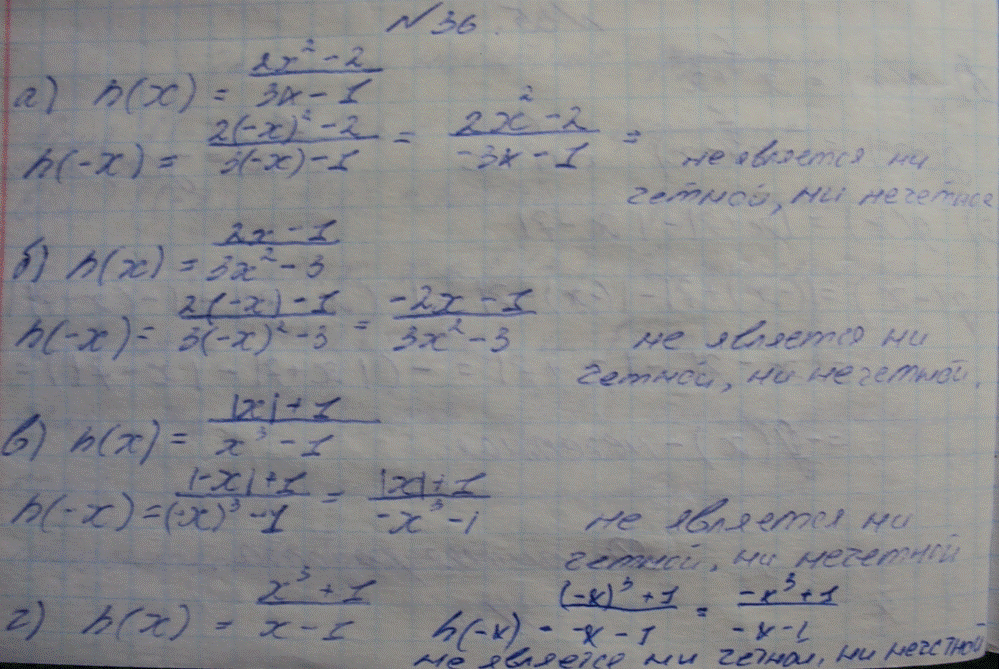 №36.
а) h(x) = (2x² - 2)/(3x - 1)
h(-x) = (2(-x)² - 2)/(3(-x) - 1) = (2x² - 2)/(-3x - 1) = не является ни
четной, ни нечетной
б) h(x) = (2x - 1)/(3x² - 3)
h(-x) = (2(-x) - 1)/(3(-x)² - 3) = (-2x - 1)/(3x² - 3) не является ни
четной, ни нечетной.
в) h(x) = (|x| + 1)/(x³ - 1)
h(-x) = (|-x| + 1)/((-x)³ - 1) = (|x| + 1)/(-x³ - 1) не является ни
четной, ни нечетной
г) h(x) = (x³ + 1)/(x - 1) h(-x) = ((-x)³ + 1)/(-x - 1) = (-x³ + 1)/(-x - 1)
не является ни четной, ни нечетной